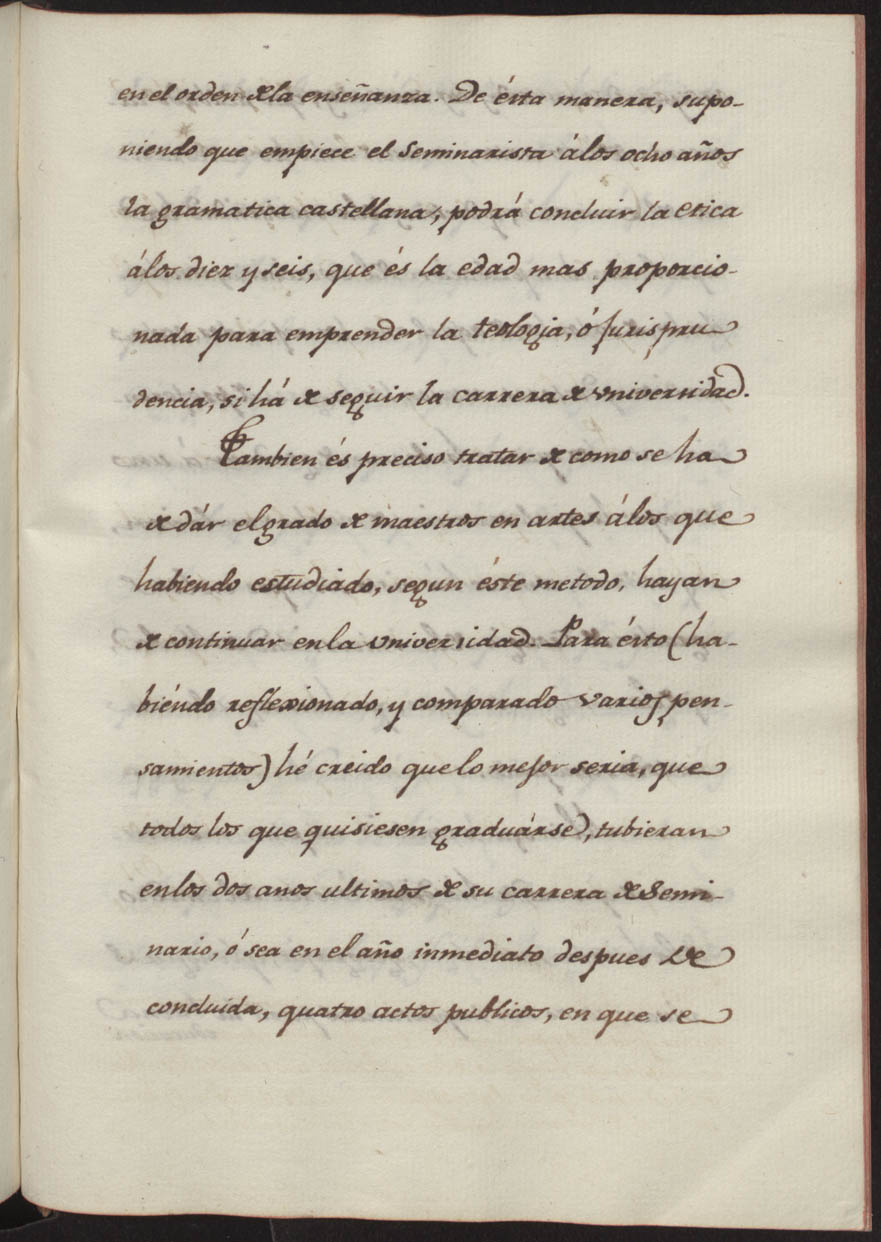 en el orden de la enseñanza. De ésta manera, supo-
niendo que empiece el Seminarista á los ocho años
la gramatica castellana, podrá concluir la etica
á los diez y seis, que és la edad mas proporcio-
nada para emprender la teologia, ó Jurispru
dencia, si há de seguir la carrera de Univérsidad.
Tambien és preciso tratar de como se ha
de dár el grado de maestros en artes á los que
habiendo estudiado, segun éste metodo, hayan
de continuar en la Universidad. Para ésto (ha-
biéndo reflexionado, y comparado varios pen-
samientos) hé creido que lo mejor seria, que
todos los que quisiesen graduárse, tubieran
en los dos anos ultimos de su carrera de Semi-
nario, ó sea en el año inmediato despues de
concluida, quatro actos publicos, en que se